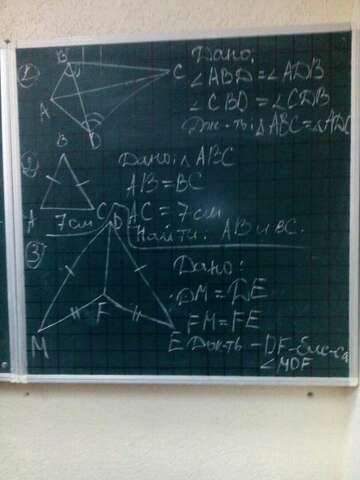 ①
B
A
D
C
Дано:
∠ABD = ∠ADB
∠CBD = ∠CDB
Док-ть: △ABC = △ADC
②
B
A
C
7см
Дано: △ABC
AB = BC
AC = 7см
Найти: AB и BC.
③
D
M
F
E
Дано:
DM = DE
FM = FE
Док-ть – DF – бис-са
∠MDF